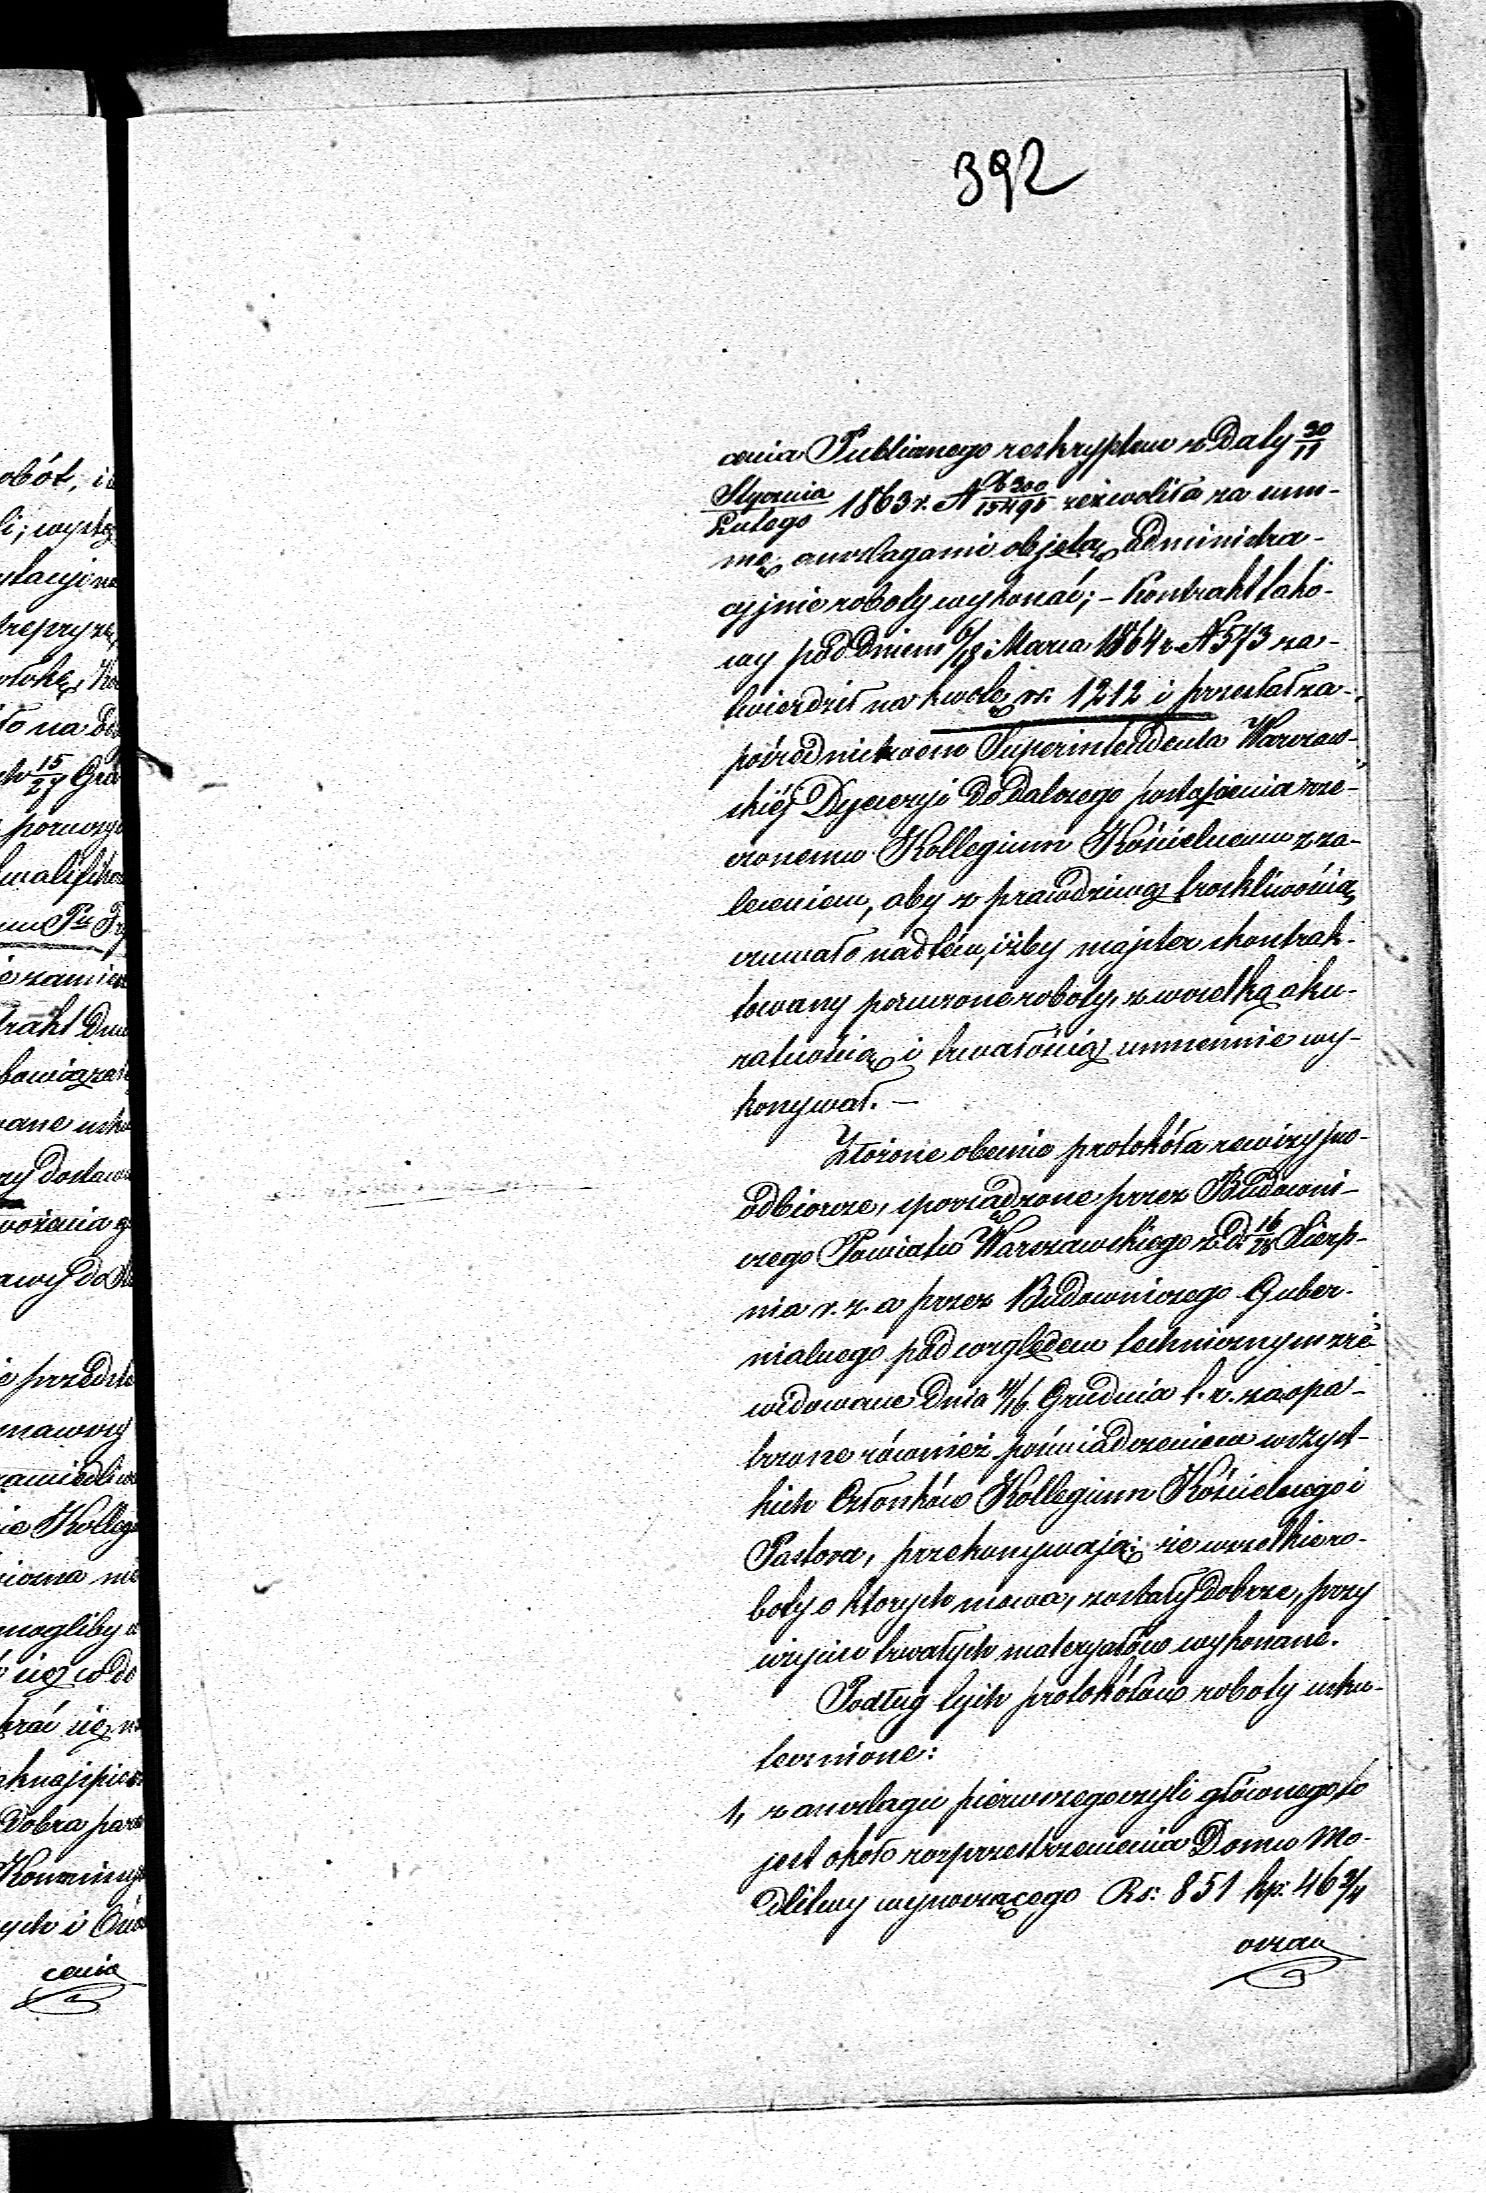 392
cenia Publicznego reskryptem z Daty 30/11
Stycznia/Lutego 1863 r. N 6300/15490 zezwoliła za sum-
mę anszlagami objętą administra-
cyjnie roboty wykonać; – Kontrakt tako-
wy pod Dniem 6/18 Marca 1864 r. N 573 za-
twierdził na kwotę rs. 1212 i przesłał za-
pośrednictwem Superintendenta Warszaw-
skiéj Dyecezyi do dalszego postąpienia rze-
czonemu Kollegium Kościelnemu z za-
leceniem, aby z prawdziwą troskliwością
czuwało nadtém, iżby majster skontrak-
towany poruczone roboty, z wszelką aku-
ratnością i trwałością summiennie wy-
konywał. –
Złożone obecnie protokóła rewizyjno-
odbiorcze, sporządzone przez Budowni-
czego Powiatu Warszawskiego z d. 16/28 Sierp-
nia r. z. a przez Budowniczego Guber-
nialnego pod względem technicznym zre-
widowane Dnia 4/16 Grudnia t. r. zaopa-
trzone również poświadczeniem wszyst-
kich Członków Kollegium Kościelnego i
Pastora, przekonywają: że wszelkie ro-
boty o których mowa, zostały dobrze, przy
użyciu trwałych materyałów wykonane.
Podług tych protokółów roboty usku-
tecznione:
1, z anszlagu pierwszego czyli głównego, to
jest około rozprzestrzenienia Domu Mo-
dlitwy wynoszącego Rs: 851 kp: 46 3/4
oszau
obót, i
li; wystę
ytacyi na
trepryzę
to na
15/27 Gru
kwalifika
trakt Dni
rzy dostaw
ie przedsta
ie Kolleg
mogliby
Dobra par
ych i Ośw
cenia